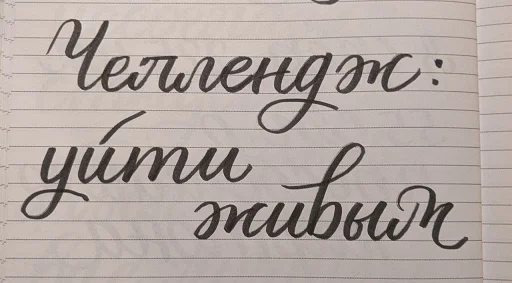 Челлендж:
уйти
живым